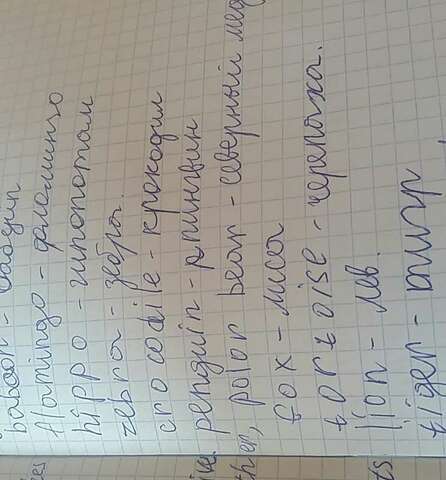 baboon - бабуин
flamingo - фламинго
hippo - гиппопотам
zebra - зебра.
crocodile - крокодил
penguin - пингвин
polar bear - северный мед
fox - лиса
tortoise - черепаха.
lion - лев.
tiger - тигр